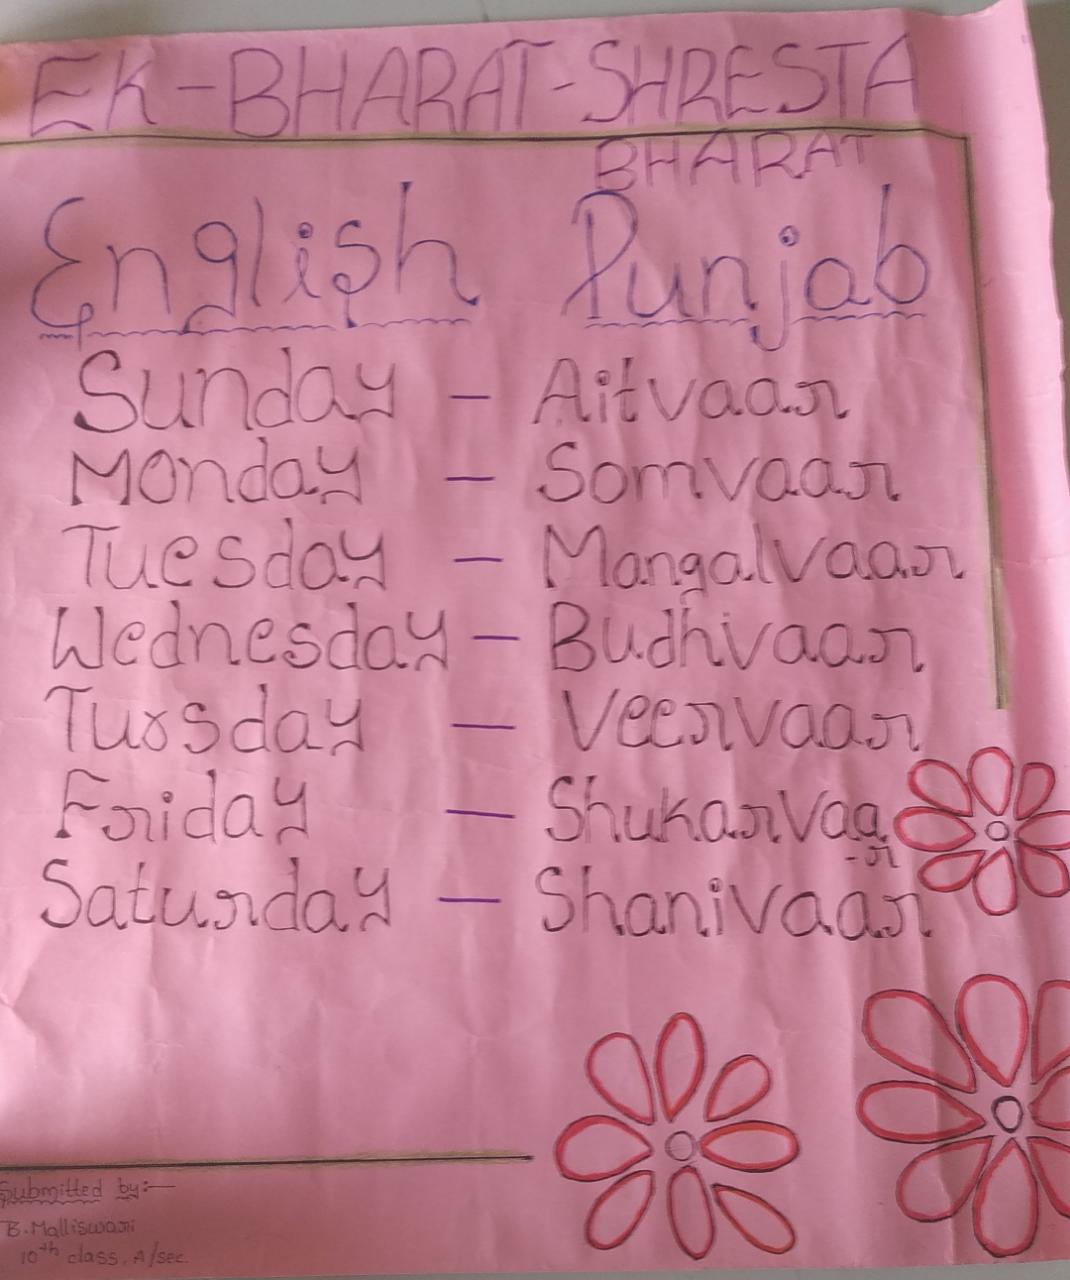 EK-BHARAT-SHRESTA
BHARAT
English Punjab
Sunday - Aitvaar
Monday - Somvaar
Tuesday - Mangalvaar
Wednesday - Budhivaar
Tursday - Veervaar
Friday - Shukarvaa
-r
Saturday - Shanivaar
Submitted by:-
B.Malliswari
10th class, A/sec.